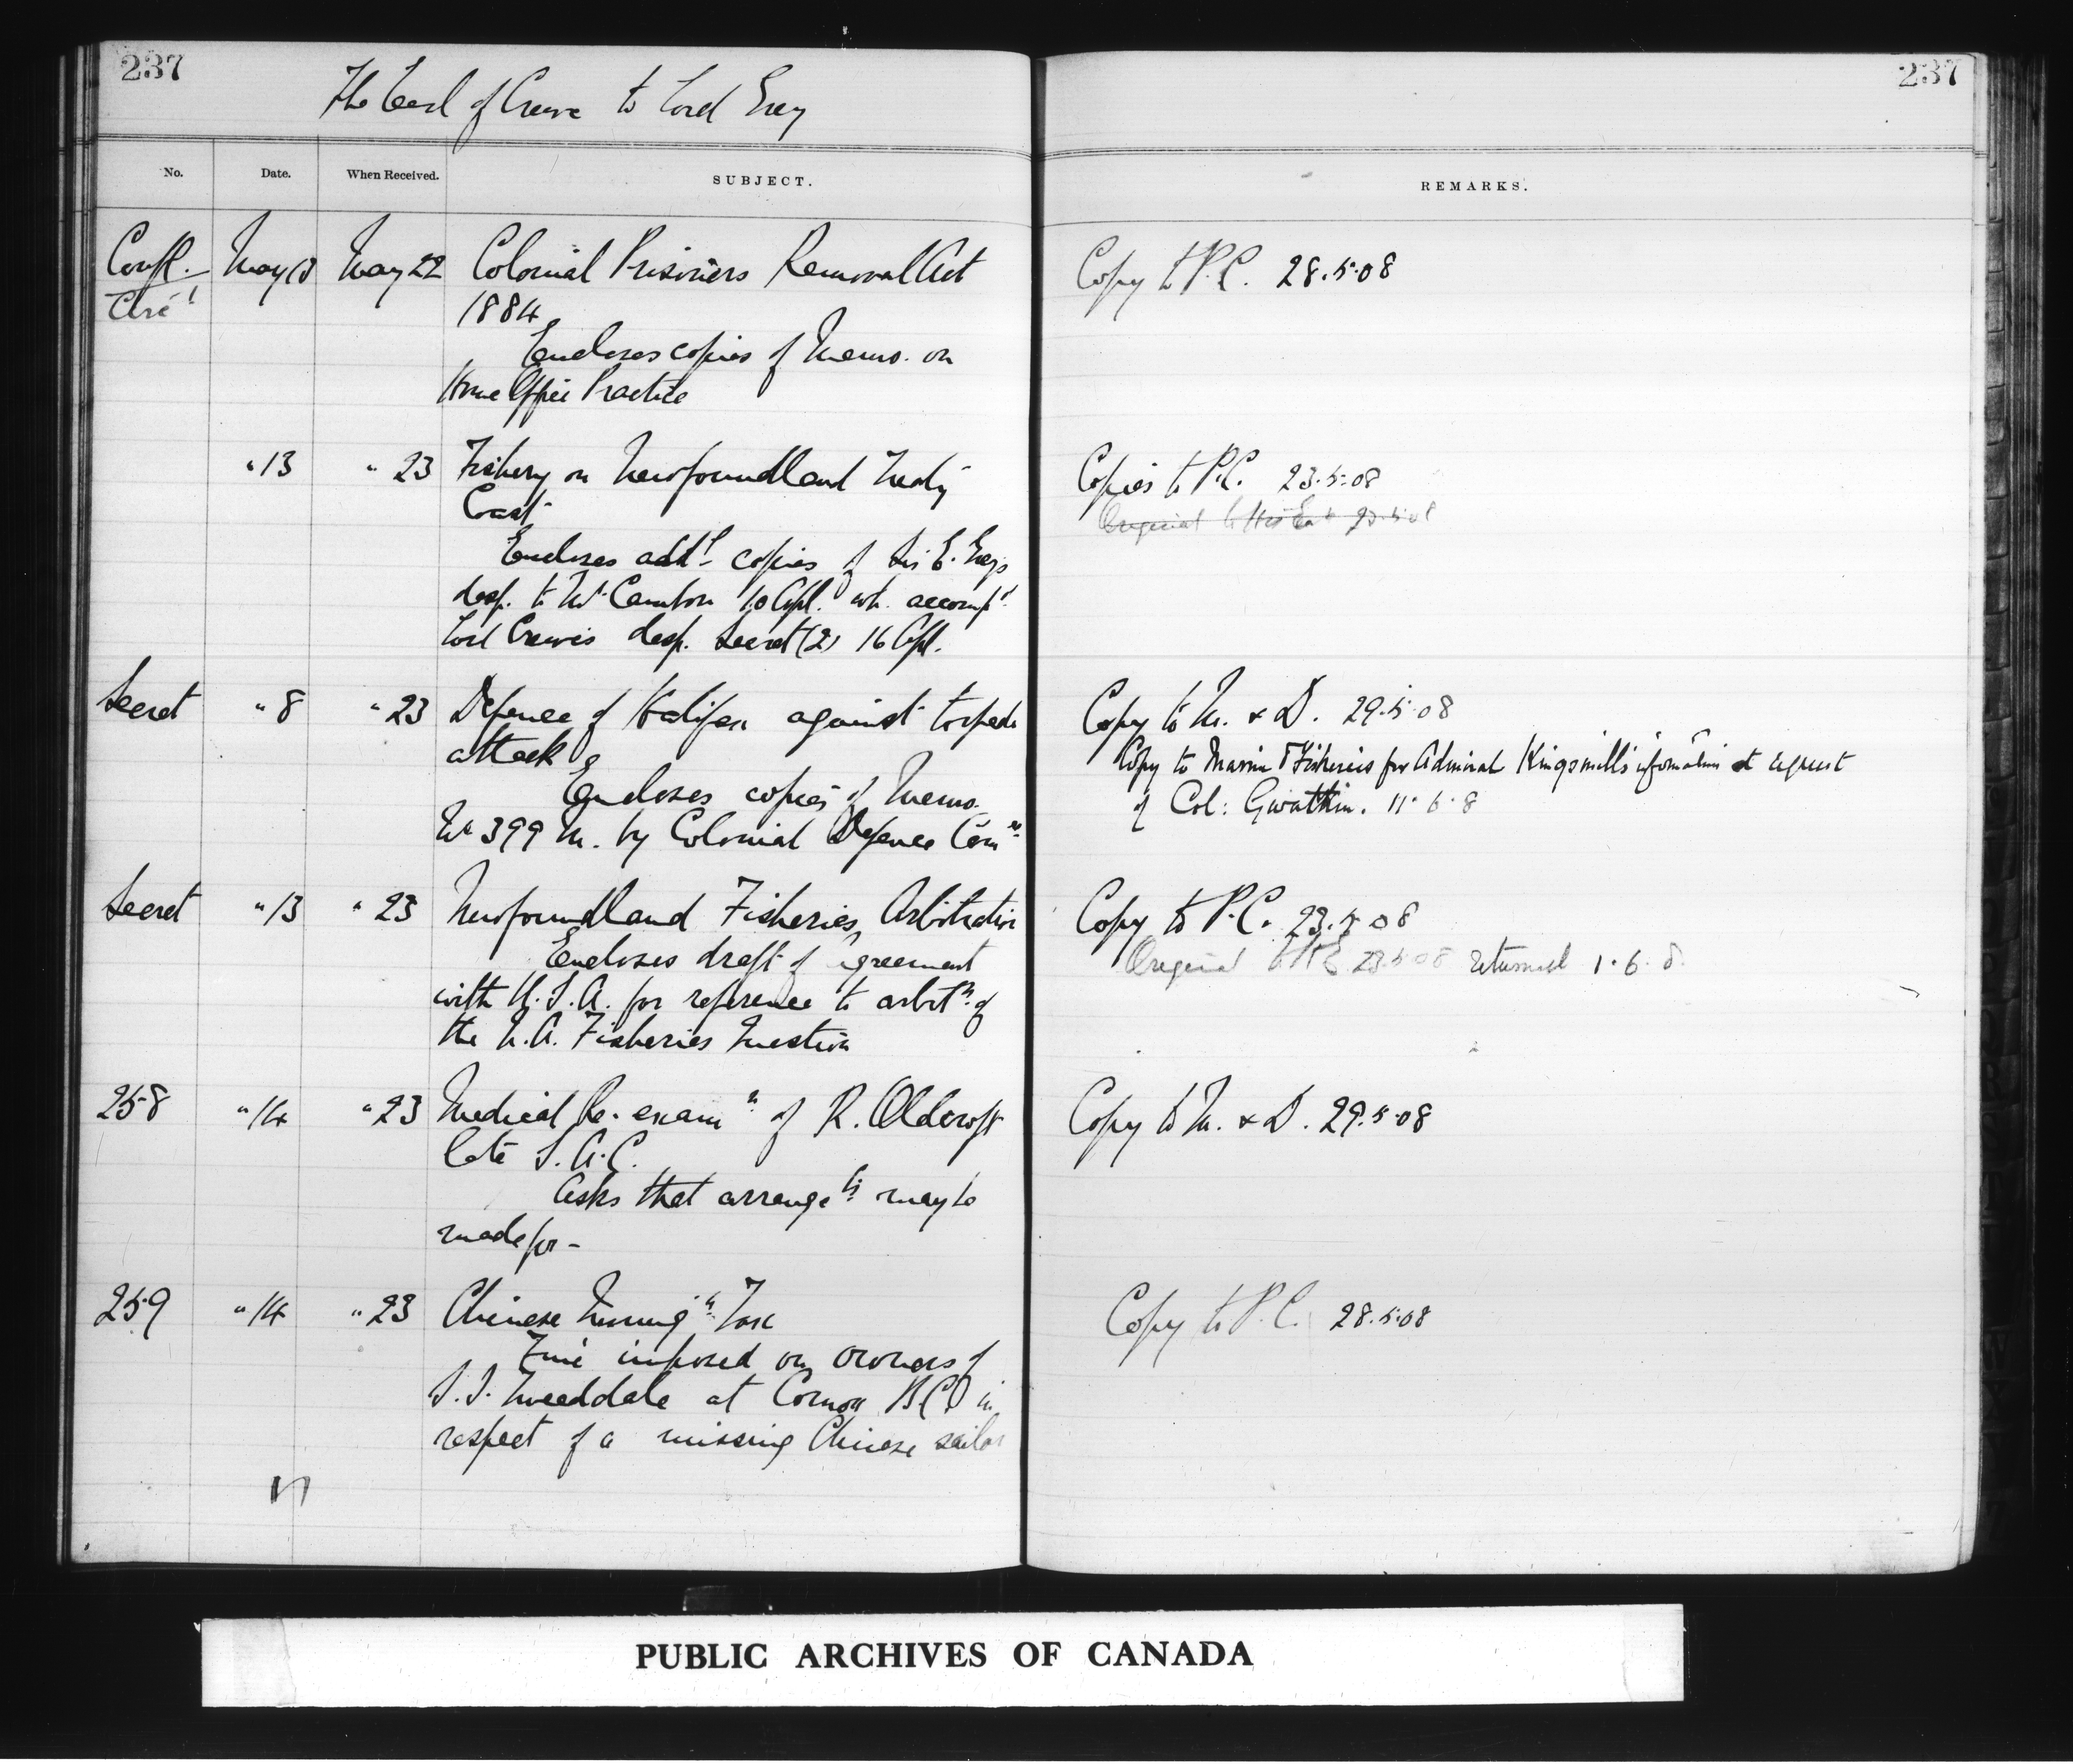 237
237
The Earl of Crewe to Lord Grey
No. Date. When Received. SUBJECT. REMARKS.
Confl. May 13 May 22 Colonial Prisoners Removal Act Copy to P.C. 28.5.08
Circ!
1884
Encloses copies of Memo. on
Home Office Practice
" 13 " 23 Fishery on Newfoundland Treaty Copies to P.C. 23.5.08
Coast Original to His Ex 23.5.08
Encloses addl copies of Sir E. Grey's
desp. to M. Cambon 10 Apl. wh. accompd
Lord Crewe's desp. Secret (2) 16 Apl.
Secret " 8 " 23 Defence of Halifax against torpedo Copy to M. & D. 29.5.08
attack Copy to Marine & Fisheries for Admiral Kingsmill's information at request
Encloses copies of Memo. of Col: Gwatkin. 11.6.8
No 399 M. by Colonial Defence Comee
Secret " 13 " 23 Newfoundland Fisheries Arbitration Copy to P.C. 23.5.08
Encloses draft of agreement Original to H.E. 23.5.08 returned 1.6.8.
with U.S.A. for reference to arbitn of
the N.A. Fisheries Question
258 " 14 " 23 Medical Re-examn of R. Oldcroft Copy to M. & D. 29.5.08
late S.A.C.
Asks that arrangets may be
made for -
259 " 14 " 23 Chinese Immign Tax Copy to P.C. 28.5.08
Fine imposed on owners of
S.S. Tweeddale at Comox B.C. in
respect of a missing Chinese sailor
PUBLIC ARCHIVES OF CANADA